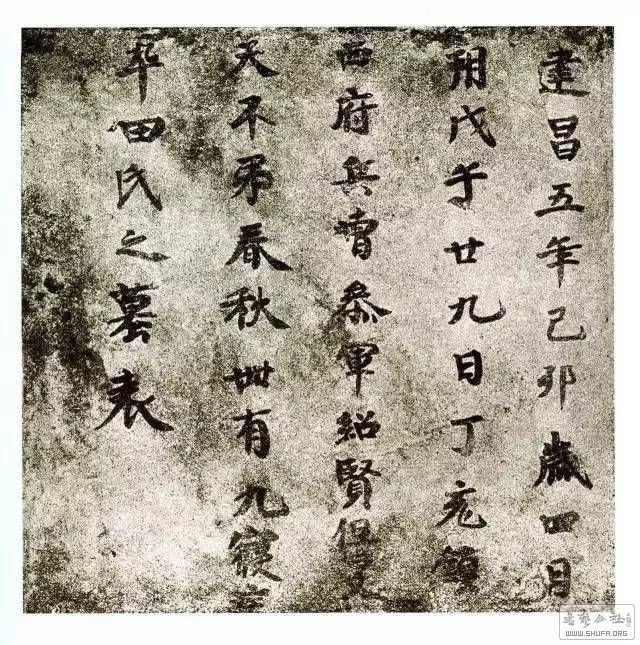 建昌五年己卯歲四月
朔戊午廿九日丁亥鎮
西府兵曹叅軍紹賢
天不弔春秋卌有九寢
卒田氏之墓表
书艺公社
WWW.SHUFA.ORG